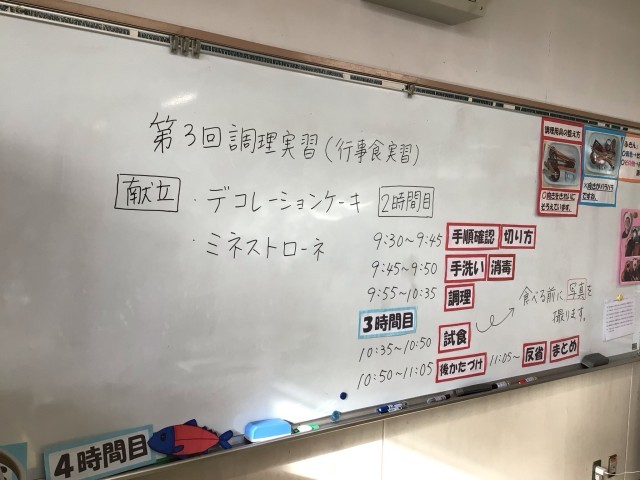 第3回調理実習(行事食実習)
献立 ・デコレーションケーキ 2時間目
・ミネストローネ
9:30~9:45 手順確認 切り方
9:45~9:50 手洗い 消毒
9:55~10:35 調理
3時間目
10:35~10:50 試食
食べる前に写真を
撮ります。
10:50~11:05 後かたづけ 11:05~ 反省 まとめ
4時間目
調理用具の整え方